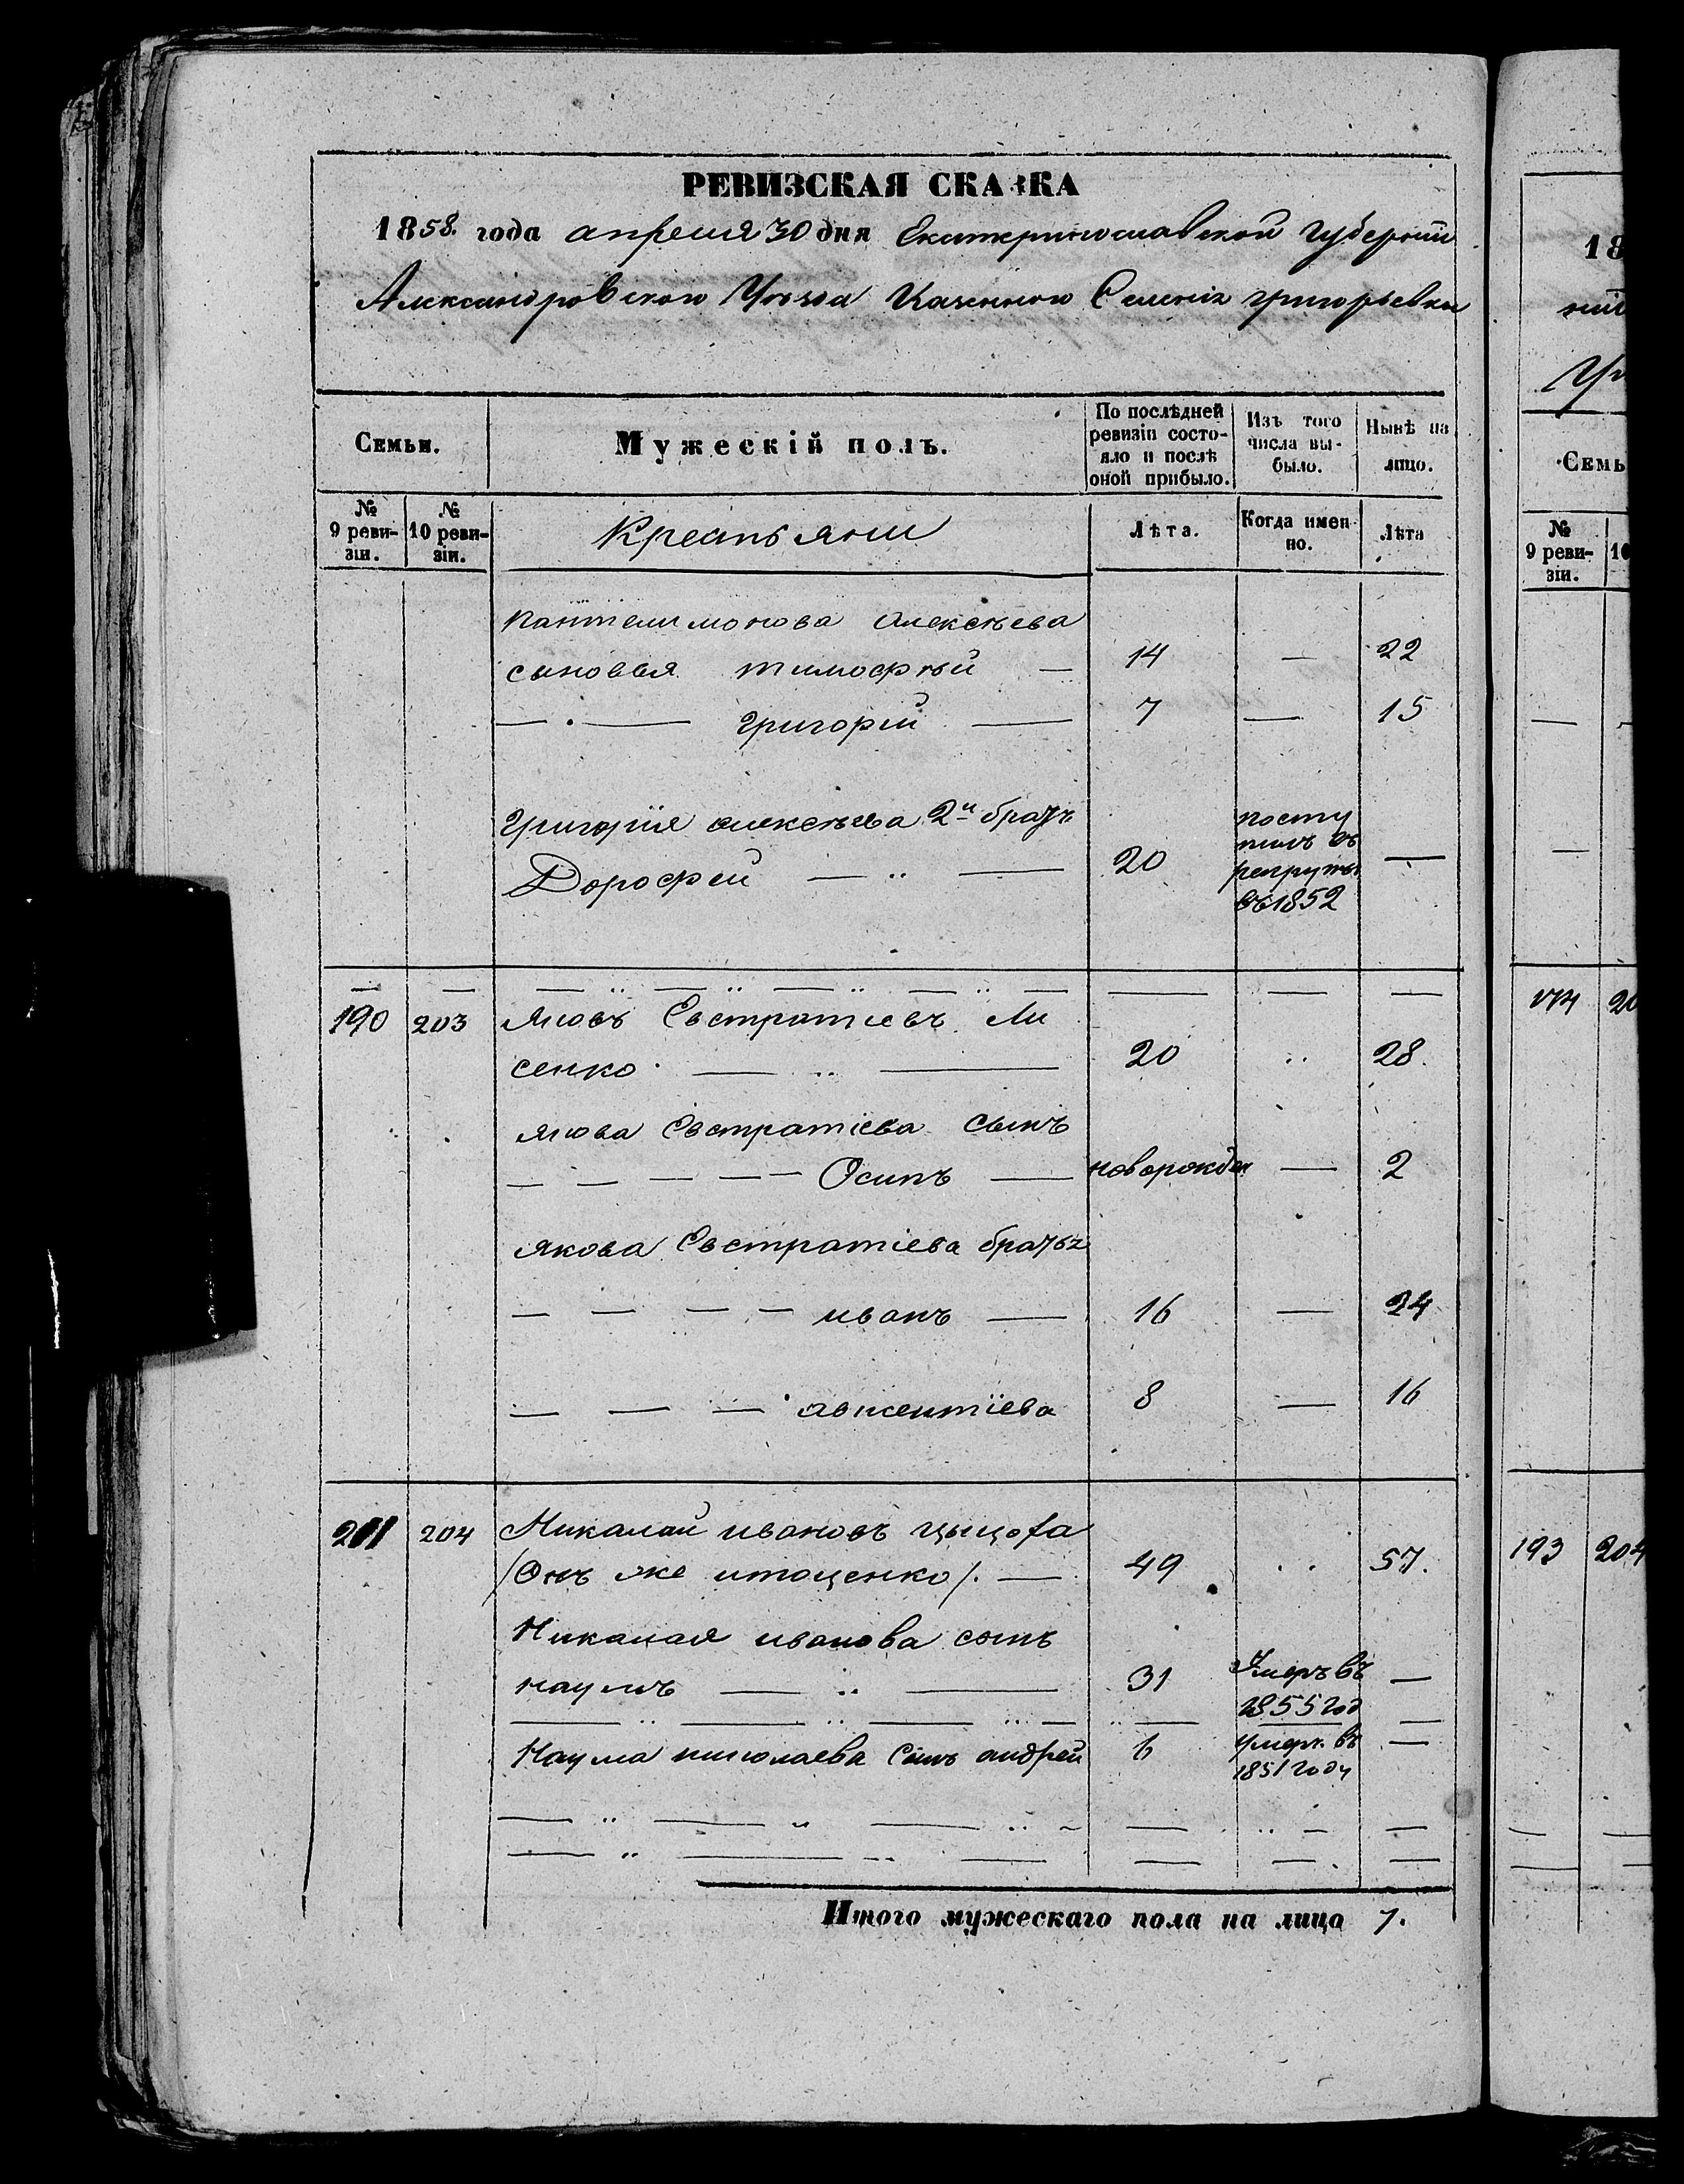 РЕВИЗСКАЯ СКАЗКА
1858. года апреля 30 дня Екатеринославской Губернии
Александровского Уѣзда Казенного Селенія григорьевки
Семьи. Мужескій полъ. По послѣдней ревизіи состояло и послѣ оной прибыло. Изъ того числа выбыло. Нынѣ на лицо.
№ 9 ревизіи. № 10 ревизіи. Крестьяни Лѣта. Когда именно. Лѣта
Пантелимонова Алексѣева
сыновья тимофѣй — 14 — 22
— григорій — 7 — 15
Григорія алексѣева 2й братъ
Дорофей — 20 посту
пилъ въ
рекруты
въ 1852 —
190 203 Яковъ Евстратіевъ Ли
сенко — 20 28.
Якова Евстратіева сынъ
— — — — Осипъ — новорожден — 2
якова Евстратіева братья
— — — — иванъ — 16 — 24
— — — авксентіева 8 — 16
201 204 Николай ивановъ
/Онъ же — 49 57.
Николая иванова сынъ
наумъ — 31 Умеръ въ
1855 год —
Наума николаева сынъ андрей 6 умеръ въ
1851 году —
Итого мужескаго пола на лицо 7.
18
Семь
№ 9 ревизіи. 10
193 204